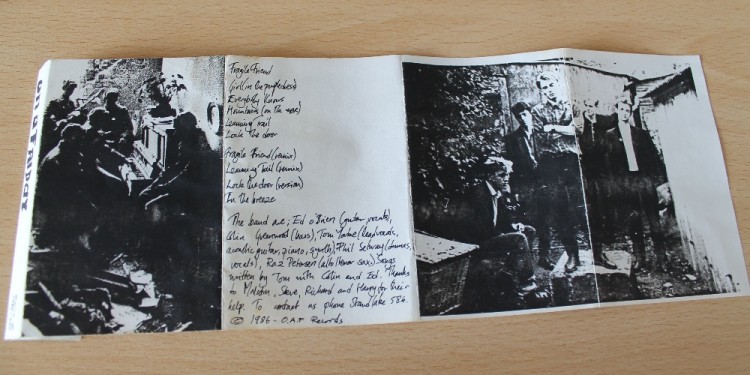 On a Friday
Fragile Friend
Girl (in the purple dress)
Everybody Knows
Mountains (on the move)
Lemming Trail
Lock the door
Fragile Friend (remix)
Lemming Trail (remix)
Lock the door (version)
In the breeze
The band are; Ed O'Brien (guitar vocals),
Colin Greenwood (bass), Tom Yorke (lead vocals,
acoustic guitar, piano, synth) Phil Selway (drums,
vocals), Raz Petersen (alto/tenor sax) Songs
written by Tom with Colin and Ed. Thanks
to Malcolm, Steve, Richard and Henry for their
help. To contact us phone Standlake 586.
© 1986 - O.A.F Records